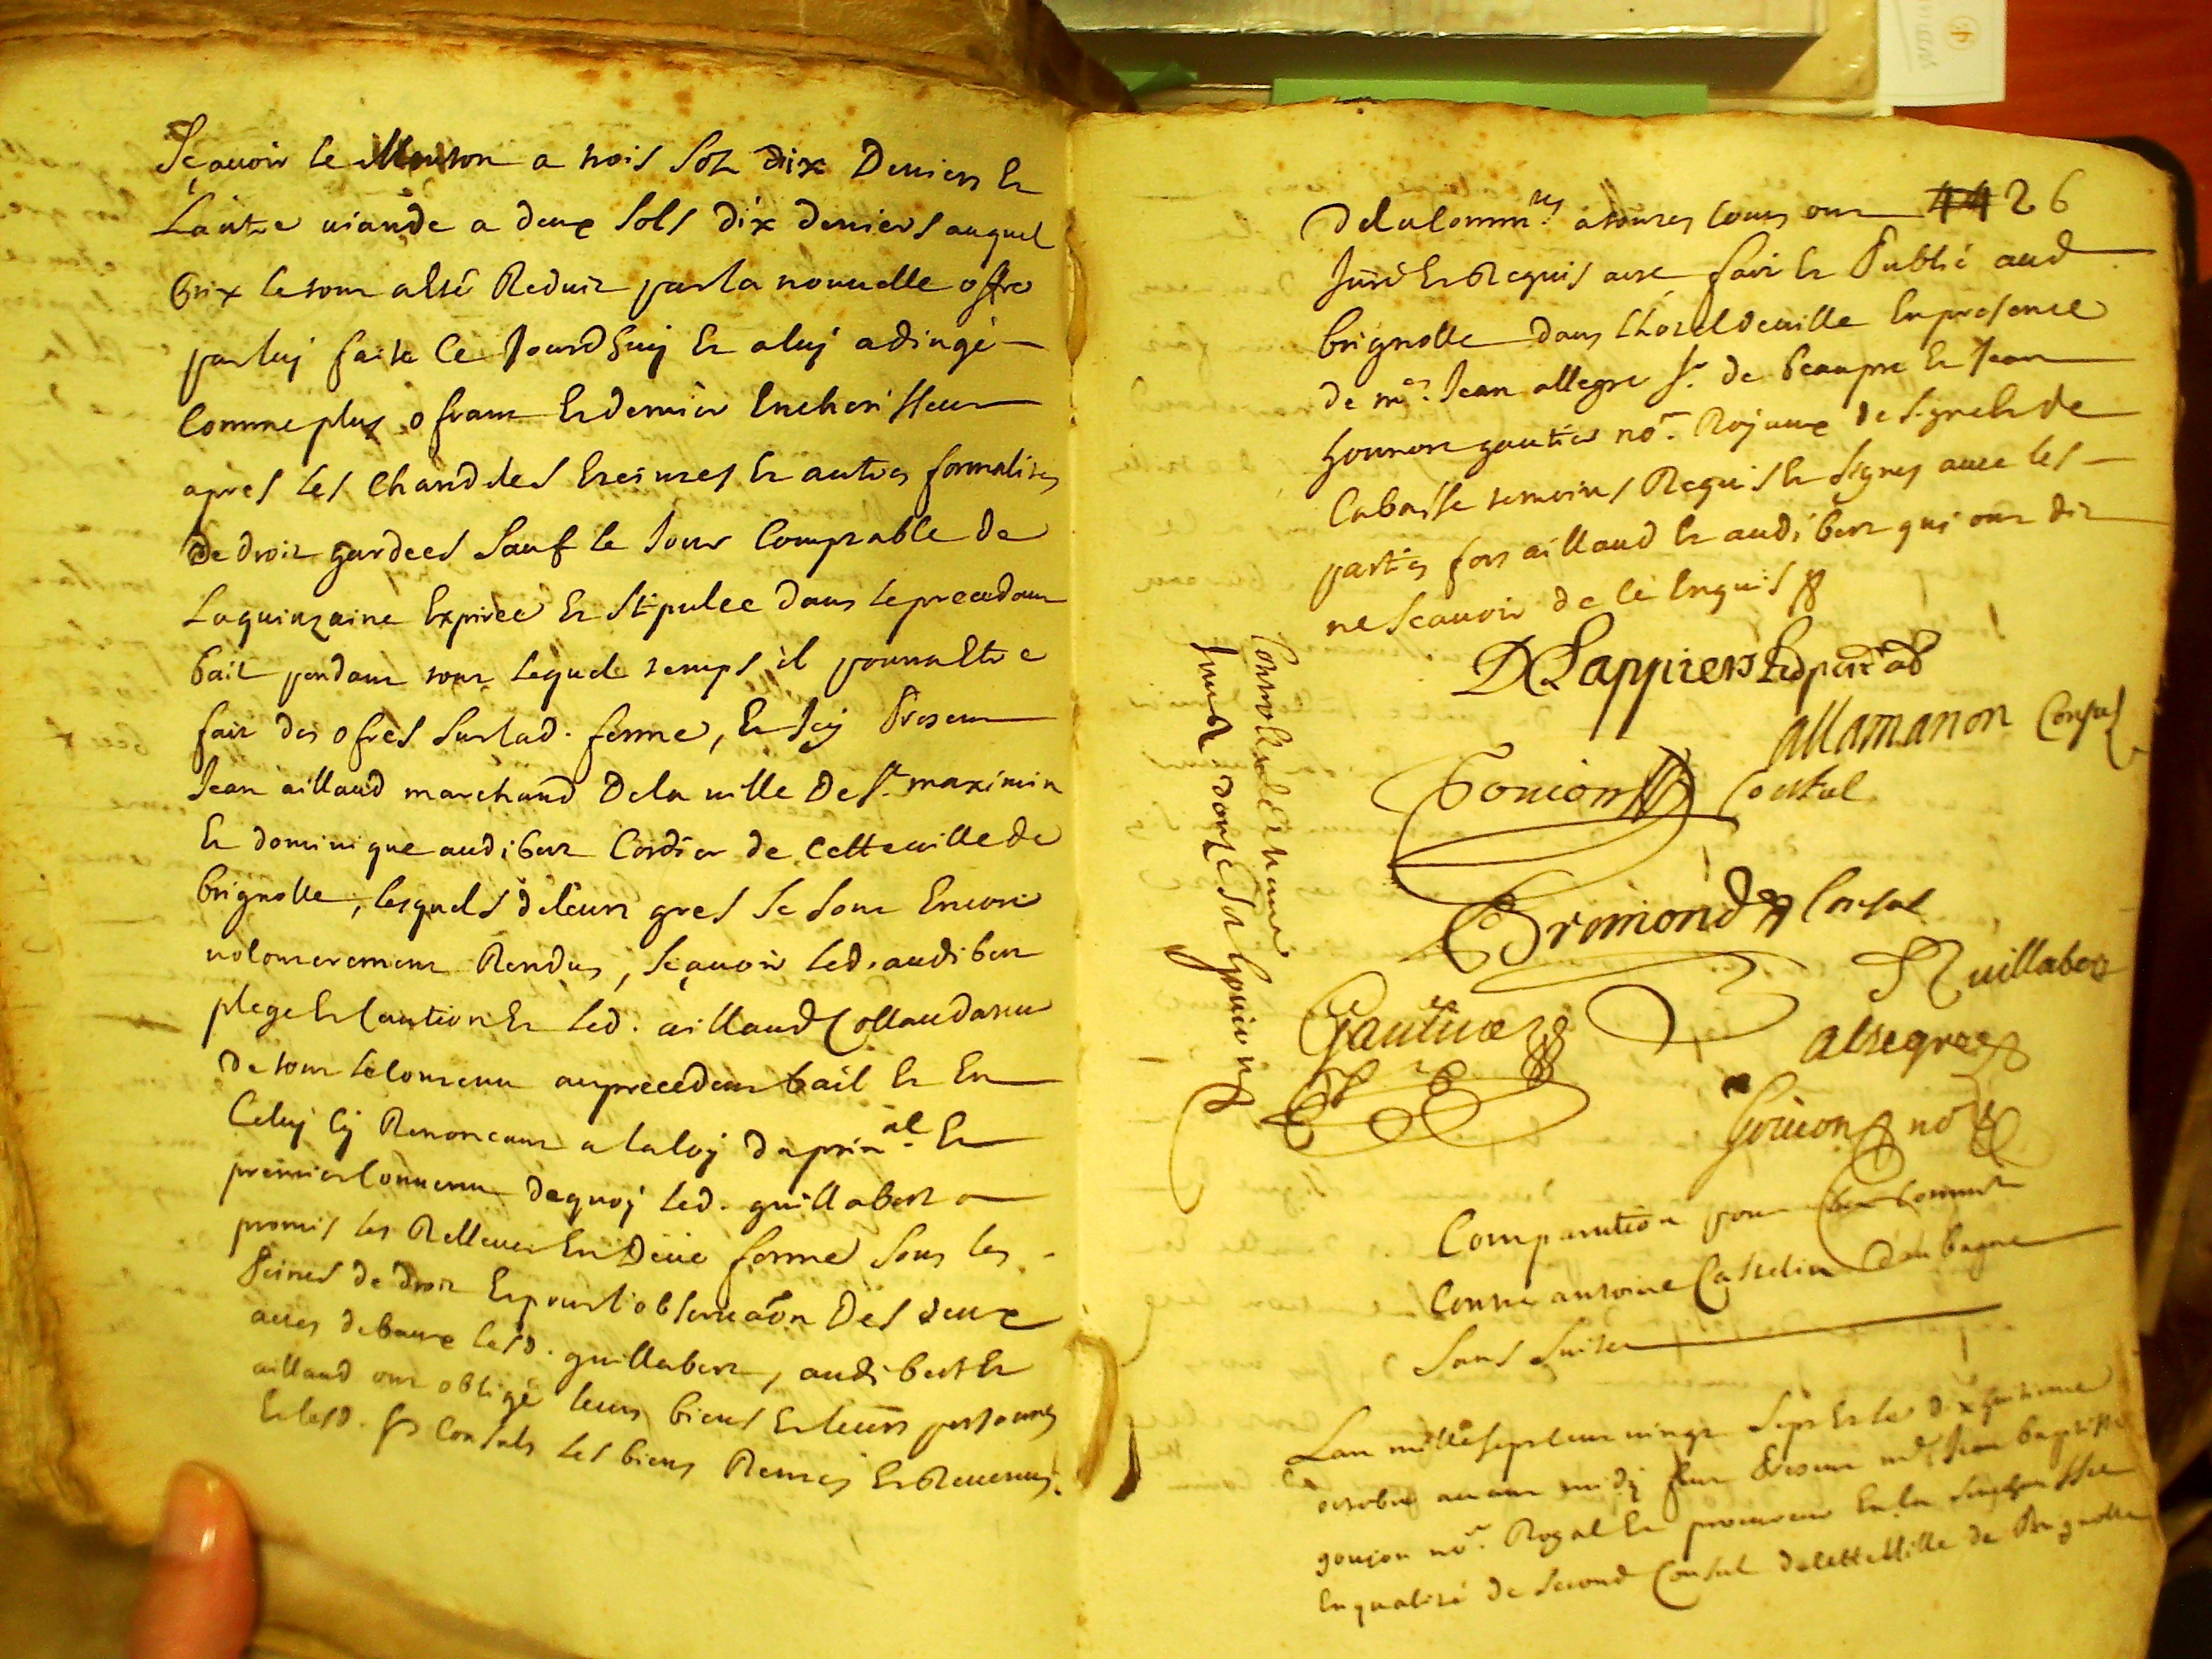 Sçavoir le Mouton a trois sols dix Deniers et
Lautre viande a deux sols dix deniers auquel
prix le tout a esté Reduit par la nouvelle offre
par luy faite Ce Jourdhuy et a luy adiugé
Comme plus ofrant et dernier Encherisseur
apres les Chandeles Esteintes et autres formalites
de droit gardees sauf le Jour Comptable de
La quinzaine Expirée et stipulee dans le precedant
bail pendant tout lequel temps il pourra Estre
fait des ofres sur lad. ferme, et Icy Present
Jean aillaud marchand De la ville De st. maximin
et dominique audibert Cordier de Cette ville de
brignolle, lesquels de leurs gres se sont Encore
volonterement Rendus, sçavoir led. audibert
plege et Caution et led. aillaud Collaudateur
de tout le Contenu au precedent bail et En
Celuy Cy Renonceant a la loy du prin.al et
premier Convenu de quoy led. guillabert a
promis les Rellever En Deüe forme sous les
Peines de droit et pour l'observaõn Des deux
actes de baux lesd. guillabert, audibert et
aillaud ont obligé leurs biens et leurs personnes
et lesd. srs Consuls les biens Rentes et Revenus
de la Comm.té a toutes Cours ont 44 26
Juré et Requis acte fait et Publié aud
brignolle dans Lhotel de ville En presence
de me. Jean allegre sr. de beaupre et Jean
honnoré gautier no.re Royaux de signe et de
Cabasse temoins Requis et signes avec les
parties fors aillaud et audibert qui ont dit
ne scavoir de Ce Enquis
allamanon Consul
Goujon Consul
Bremond Consul
guillabert
Gautier
allegre
Goujon no.re
Controllé
douze sols Goujon no.re
Comparution pour
Contre antoine daubagne
sans suite
Lan mille sept Cent vingt sept et le dix huitieme
octobre avant midy feut Present me. Jean baptiste
goujon no.re Royal et procureur En la senechaussée
En qualité de second Consul de Cette Ville de Brignolle